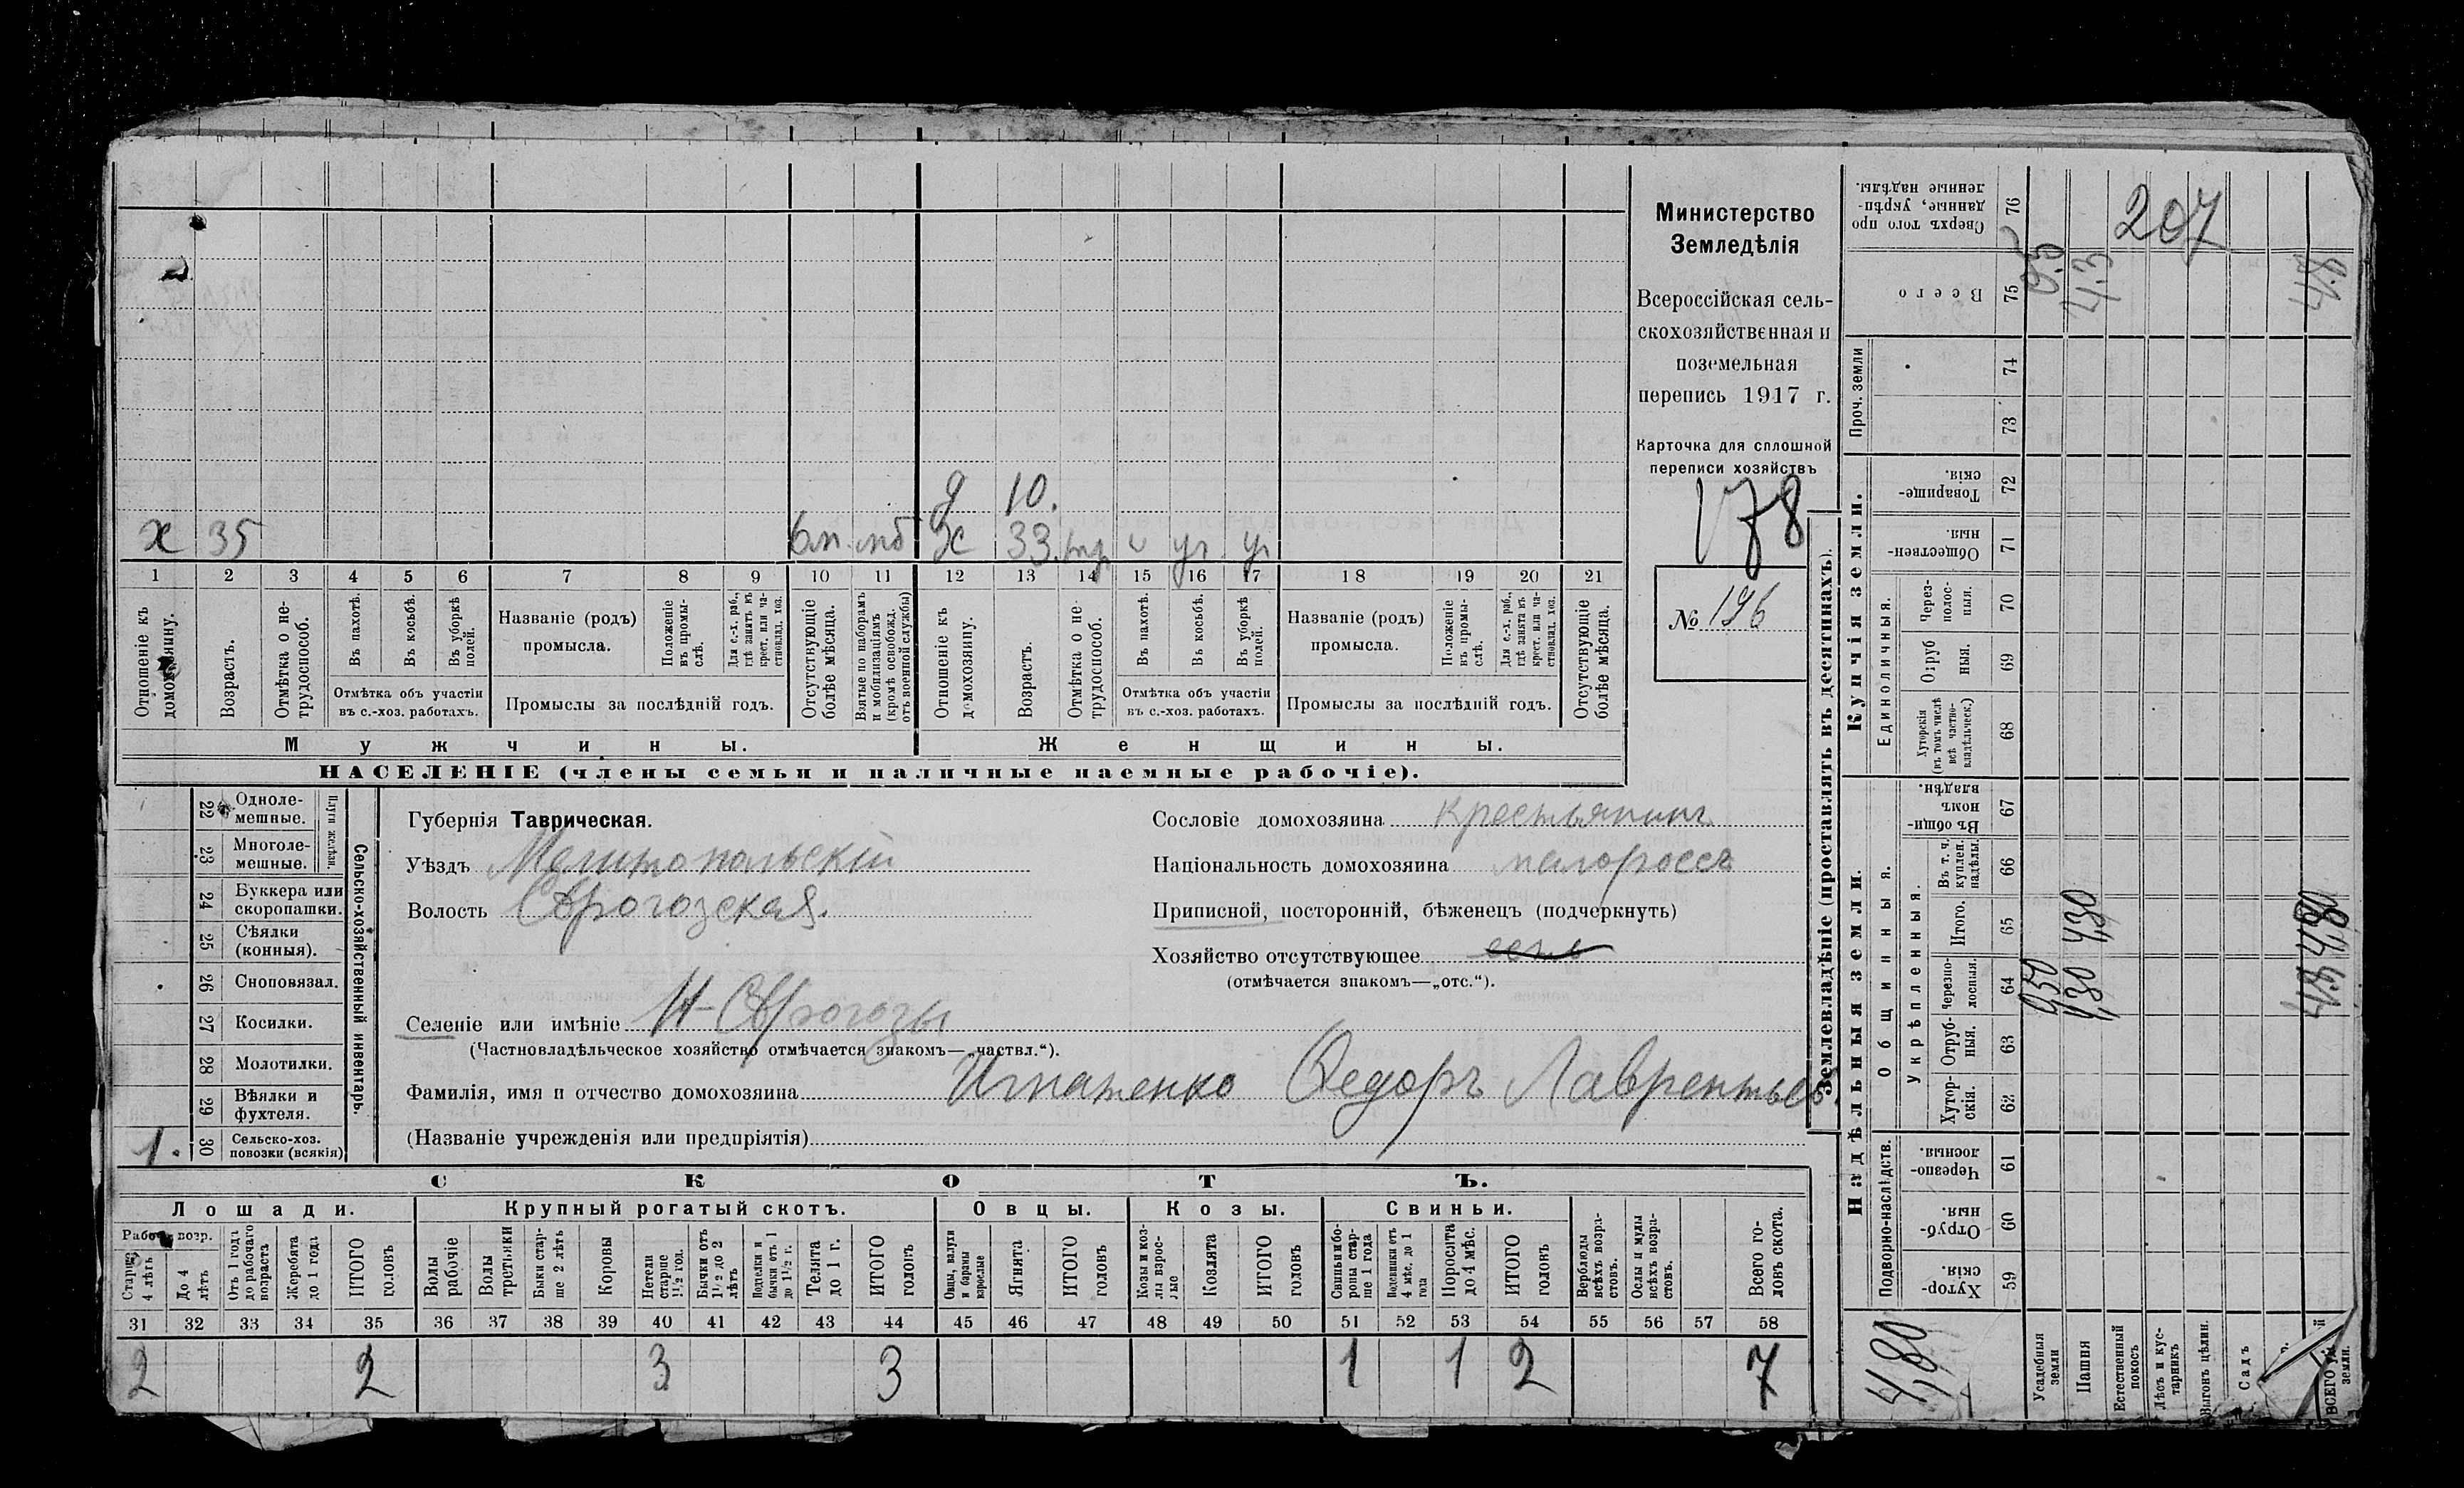 207
Министерство
Земледѣлія
Всероссійская сель-
скохозяйственная и
поземельная
перепись 1917 г.
Карточка для сплошной
переписи хозяйствъ
178
№ 196
д 10.
х 35 6м. мб Ж 33.
1 2 3 4 5 6 7 8 9 10 11 12 13 14 15 16 17 18 19 20 21
Отношеніе къ домохозяину.
Возрастъ.
Отмѣтка о не-трудоспособ.
Въ пахотѣ.
Въ косьбѣ.
Въ уборкѣ полей.
Отмѣтка объ участіи
въ с.-хоз. работахъ.
Названіе (родъ)
промысла.
Положеніе въ промы-слѣ.
Для с.-х. раб., гдѣ занятъ въ крест. или ча-стновлад. хоз.
Промыслы за послѣдній годъ.
Отсутствующіе болѣе мѣсяца.
Взятые по наборамъ и мобилизаціямъ (кромѣ освобожд. отъ военной службы)
Отношеніе къ домохозяину.
Возрастъ.
Отмѣтка о не-трудоспособ.
Въ пахотѣ.
Въ косьбѣ.
Въ уборкѣ полей.
Отмѣтка объ участіи
въ с.-хоз. работахъ.
Названіе (родъ)
промысла.
Положеніе въ промы-слѣ.
Для с.-х. раб., гдѣ занята въ крест. или ча-стновлад. хоз.
Промыслы за послѣдній годъ.
Отсутствующіе болѣе мѣсяца.
Мужчины.
Женщины.
НАСЕЛЕНІЕ (члены семьи и наличные наемные рабочіе).
Сельско-хозяйственный инвентарь.
Плуги желѣзн.
22 Одноле-мешные.
23 Многоле-мешные.
24 Буккера или скоропашки.
25 Сѣялки (конныя).
26 Сноповязал.
27 Косилки.
28 Молотилки.
29 Вѣялки и фухтеля.
30 Сельско-хоз. повозки (всякія)
1.
Губернія Таврическая.
Уѣздъ Мелитопольскій
Волость
Селеніе или имѣніе
(Частновладѣльческое хозяйство отмѣчается знакомъ—„частвл.“).
Фамилія, имя и отчество домохозяина Игнатенко Федоръ Лаврентьев.
(Названіе учрежденія или предпріятія)
Сословіе домохозяина крестьянинъ
Національность домохозяина малороссъ
Приписной, посторонній, бѣженецъ (подчеркнуть)
Хозяйство отсутствующее
(отмѣчается знакомъ—„отс.“).
СКОТЪ.
Лошади. Крупный рогатый скотъ. Овцы. Козы. Свиньи.
Рабоч. возр.
Старше 4 лѣтъ
До 4 лѣтъ
Отъ 1 года до рабочаго возраста
Жеребята до 1 года
ИТОГО головъ
Волы рабочіе
Волы третьяки
Быки стар-ше 2 лѣтъ
Коровы
Нетели старше 1½ год.
Бычки отъ 1½ до 2 лѣтъ
Подтелки и бычки отъ 1 до 1½ г.
Телята до 1 г.
ИТОГО головъ
Овцы, валухи и бараны взрослые
Ягнята
ИТОГО головъ
Козы и коз-лы взрос-лые
Козлята
ИТОГО головъ
Свиньи бо-ровы стар-ше 1 года
Подсвинки отъ 4 мѣс. до 1 года
Поросята до 4 мѣс.
ИТОГО головъ
Верблюды всѣхъ возра-стовъ.
Ослы и мулы всѣхъ возра-стовъ.
Всего го-ловъ скота.
31 32 33 34 35 36 37 38 39 40 41 42 43 44 45 46 47 48 49 50 51 52 53 54 55 56 57 58
2 2 3 3 1 1 2 7
Землевладѣніе (проставлять въ десятинахъ).
Надѣльныя земли.
Купчія земли.
Проч. земли
Подворно-наслѣдств.
Общинныя.
Укрѣпленныя.
Единоличныя.
59 Хутор-скія.
60 Отруб-ныя.
61 Черезпо-лосныя.
62 Хутор-скія.
63 Отруб-ныя.
64 Черезпо-лосныя.
65 Итого.
66 Въ т. ч. куплен. надѣлы.
67 Въ общи-номъ владѣн.
68 Хуторскія (въ томъ числѣ всѣ частно-владѣльческ.)
69 Отруб ныя.
70 Через-полос-ныя.
71 Обществен-ныя.
72 Товарище-скія.
73
74
75 Всего
76 Сверхъ того про данные, укрѣп-ленные надѣлы.
Усадебныя земли
Пашня 4,30 4,30 4,3
Естественный покосъ
Лѣсъ и кус-тарникъ
Выгонъ цѣлин.
Садъ
ВСЕГО земли. 4,80 4,8
4,80